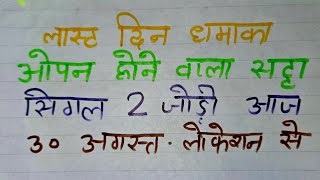 लास्ट दिन धमाका
ओपन होने वाला सट्टा
सिगल 2 जोड़ी आज
३० अगस्त. लोकेशन से